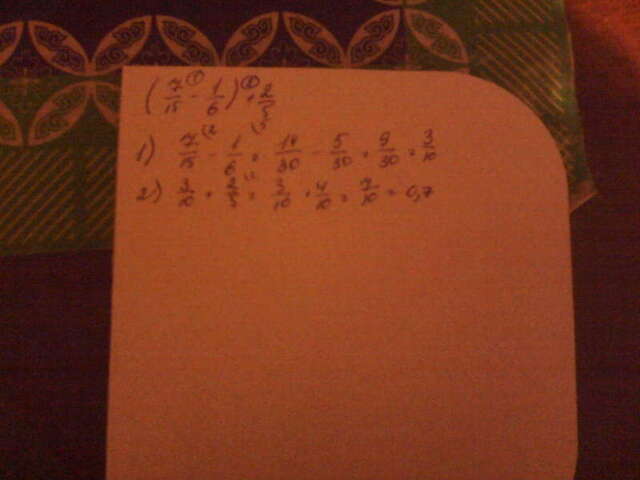 (7/15 ① - 1/6) ② + 2/5
1) 7/15 \2 - 1/6 \5 = 14/30 - 5/30 = 9/30 = 3/10
2) 3/10 + 2/5 \2 = 3/10 + 4/10 = 7/10 = 0,7